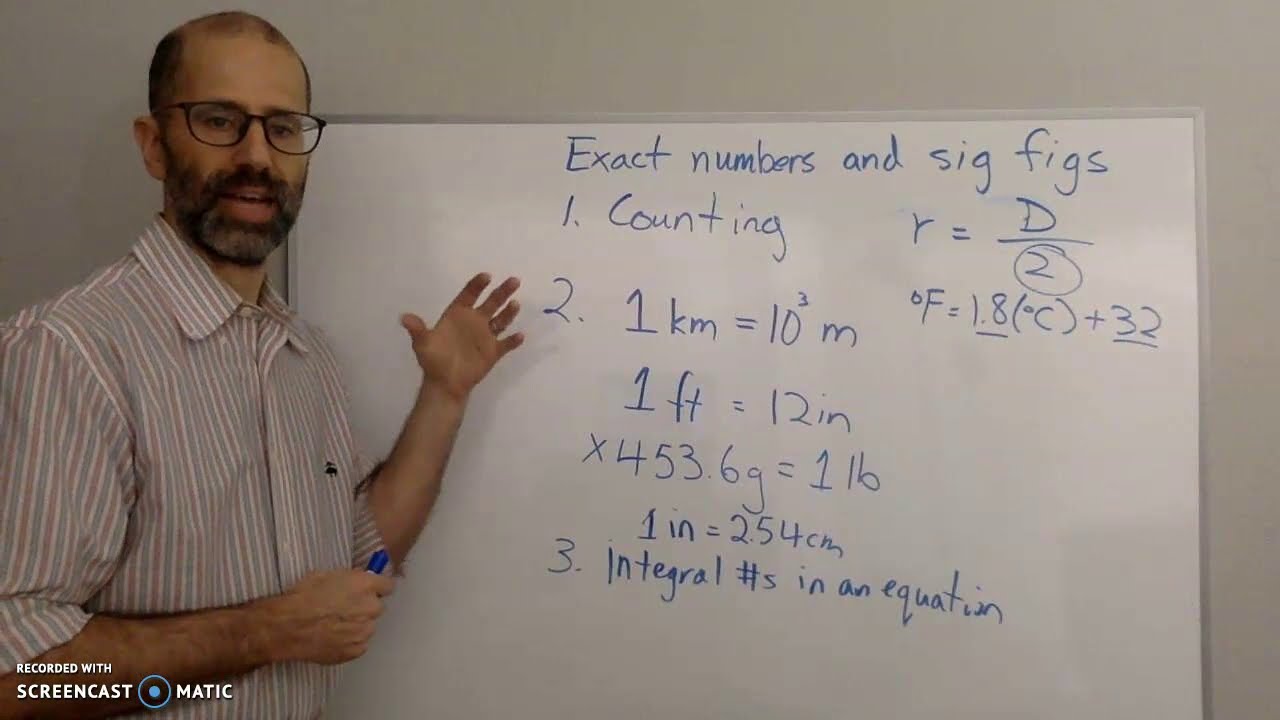 Exact numbers and sig figs
1. Counting
r = D/2
2. 1 km = 10³ m
°F = 1.8(°C) + 32
1 ft = 12 in
x 453.6g = 1 lb
1 in = 2.54 cm
3. Integral #s in an equation
RECORDED WITH
SCREENCAST MATIC